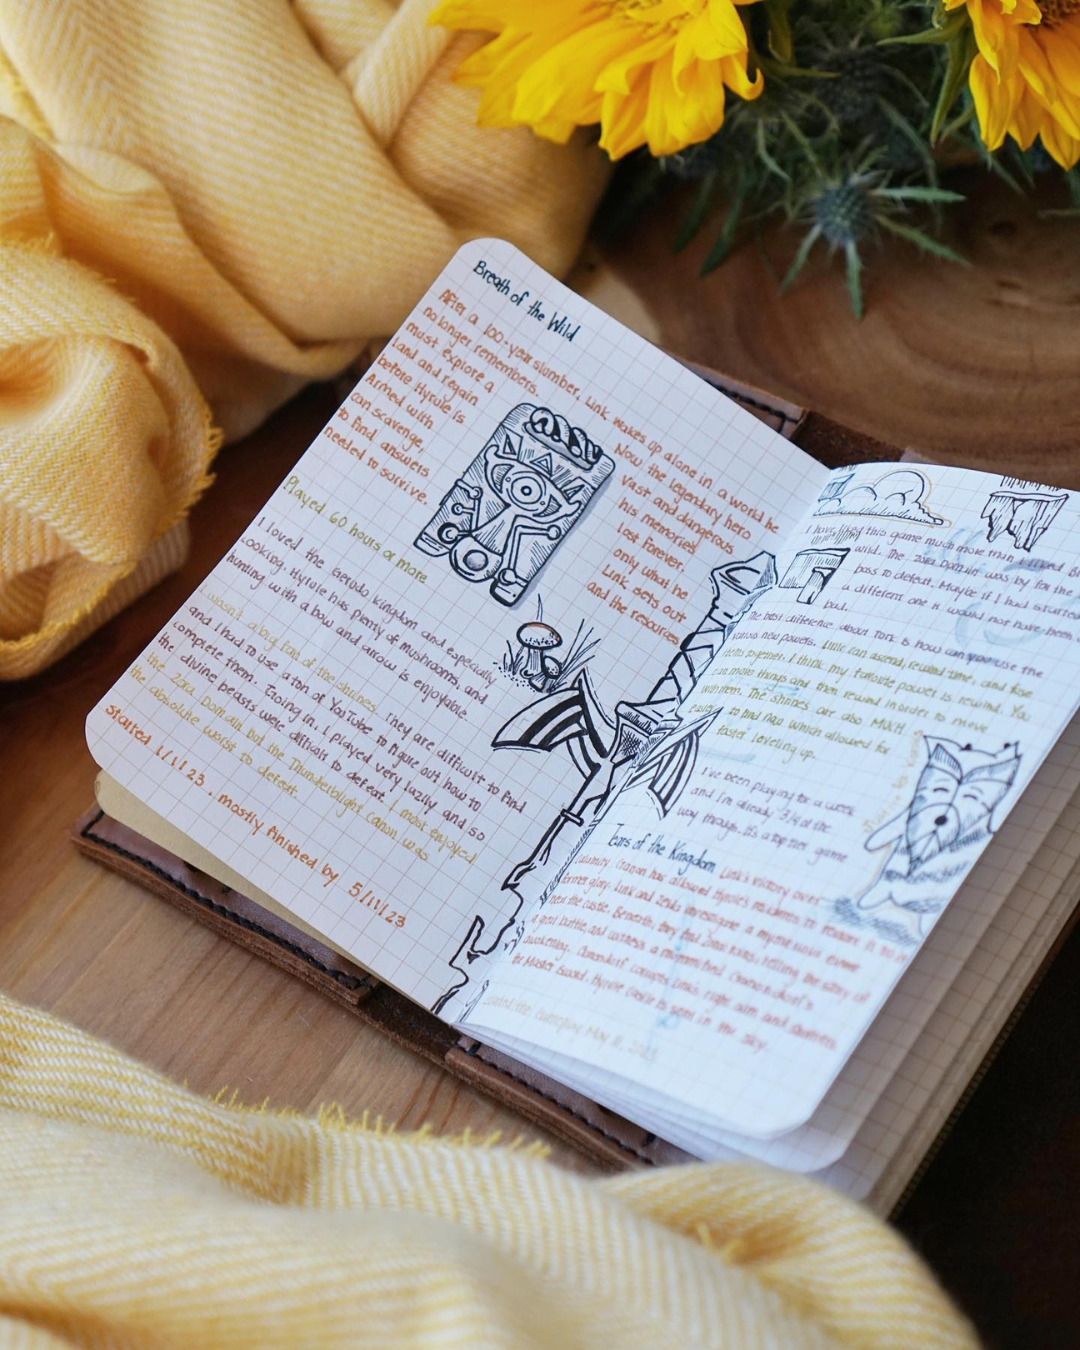 Breath of the Wild
After a 100-year slumber, Link wakes up alone in a world he
no longer remembers.
Now the legendary hero
must explore a
vast and dangerous
land and regain
his memories
before Hyrule is
lost forever.
Armed with
only what he
can scavenge,
Link sets out
to find answers
and the resources
needed to survive.
Played 60 hours or more
I loved the Gerudo kingdom and especially
cooking. Hyrule has plenty of mushrooms, and
hunting with a bow and arrow is enjoyable.
I wasn't a big fan of the shrines. They are difficult to find
and I had to use a ton of YouTube to figure out how to
complete them. Going in, I played very lazily and so
the divine beasts were difficult to defeat. I most enjoyed
the Zora Domain but the Thunderblight Ganon was
the absolute worst to defeat.
Started 1/1/23, mostly finished by 5/11/23
I have liked this game much more than I liked
wild. The Zora Domain was by far the
boss to defeat. Maybe if I had started
a different one it would not have been
bad.
The best difference about TotK is how can use the
various new powers. Link can ascend, rewind time, and fuse
items together. I think my favorite power is rewind. You
can move things and then rewind in order to move
with them. The shrines are also MUCH
easier to find which allowed for
faster leveling up.
I've been playing for a week
and I'm already 3/4 of the
way through. It's a top tier game
Tears of the Kingdom
Link's victory over
Calamity Ganon has allowed Hyrule's residents to restore it to its
former glory. Link and Zelda investigate a mysterious event
near the castle. Beneath, they find ruins telling the story of
a great battle, and witness a mummified Ganondorf's
awakening. Ganondorf corrupts Link's right arm and shatters
the Master Sword. Hyrule Castle is sent in the sky.
Started the gameplay May 11, 2023